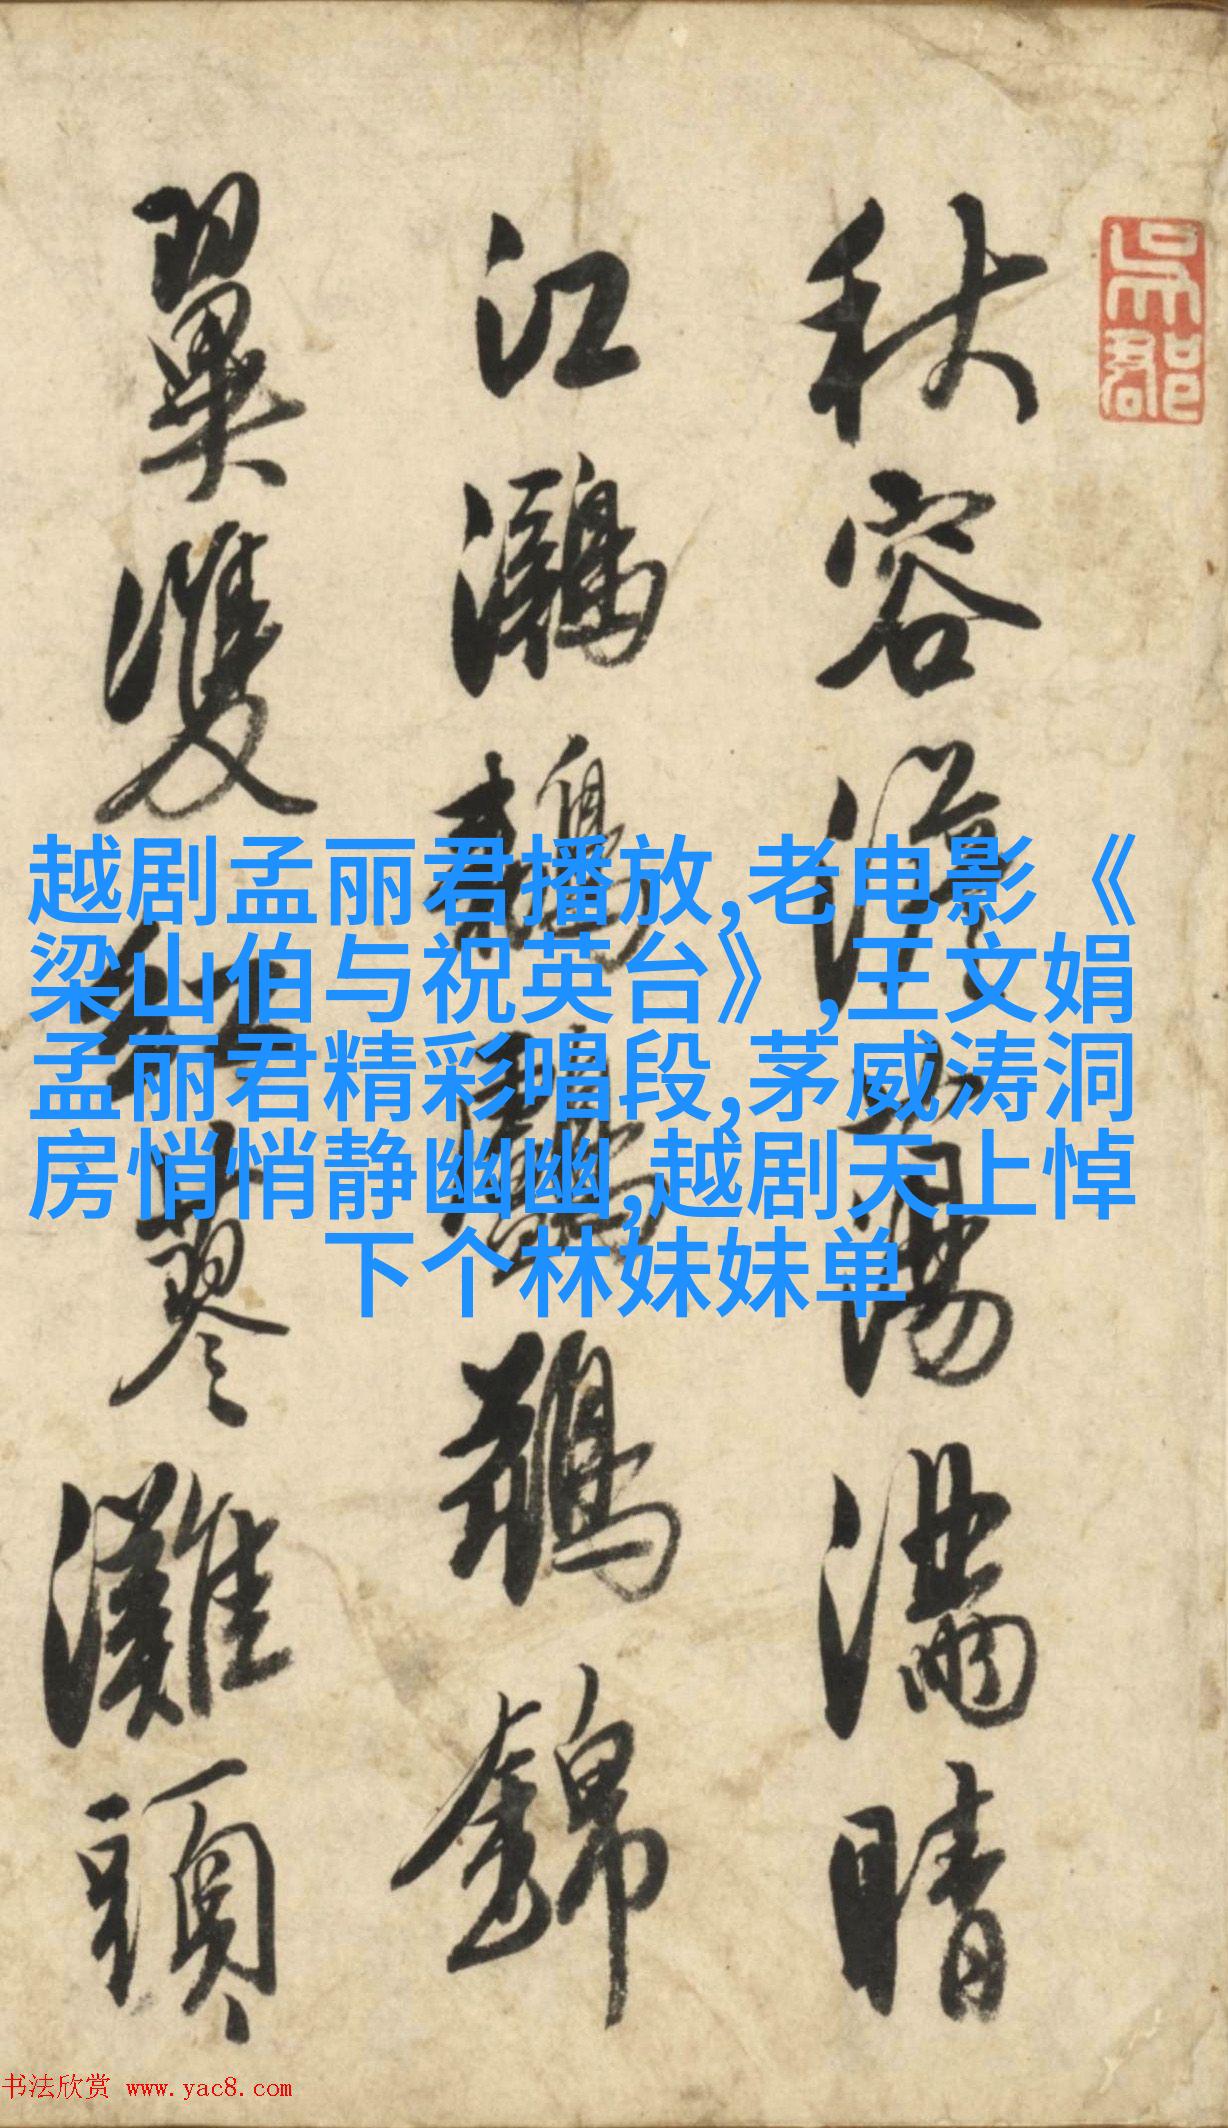 吳郡
秋容蕩滿晴
江鸂鶒鸕鷀錦
翼雙紅蓼灘頭
越剧孟丽君播放,老电影《
梁山伯与祝英台》,王文娟
孟丽君精彩唱段,茅威涛洞
房悄悄静幽幽,越剧天上悼
下个林妹妹单
书法欣赏 www.yac8.com